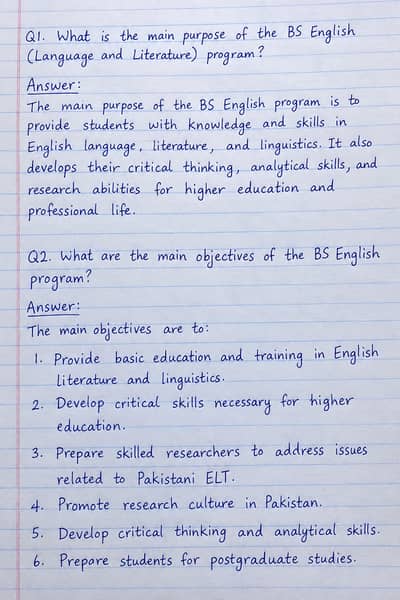 Q1. What is the main purpose of the BS English
(Language and Literature) program?
Answer:
The main purpose of the BS English program is to
provide students with knowledge and skills in
English language, literature, and linguistics. It also
develops their critical thinking, analytical skills, and
research abilities for higher education and
professional life.
Q2. What are the main objectives of the BS English
program?
Answer:
The main objectives are to:
1. Provide basic education and training in English
Literature and linguistics.
2. Develop critical skills necessary for higher
education.
3. Prepare skilled researchers to address issues
related to Pakistani ELT.
4. Promote research culture in Pakistan.
5. Develop critical thinking and analytical skills.
6. Prepare students for postgraduate studies.